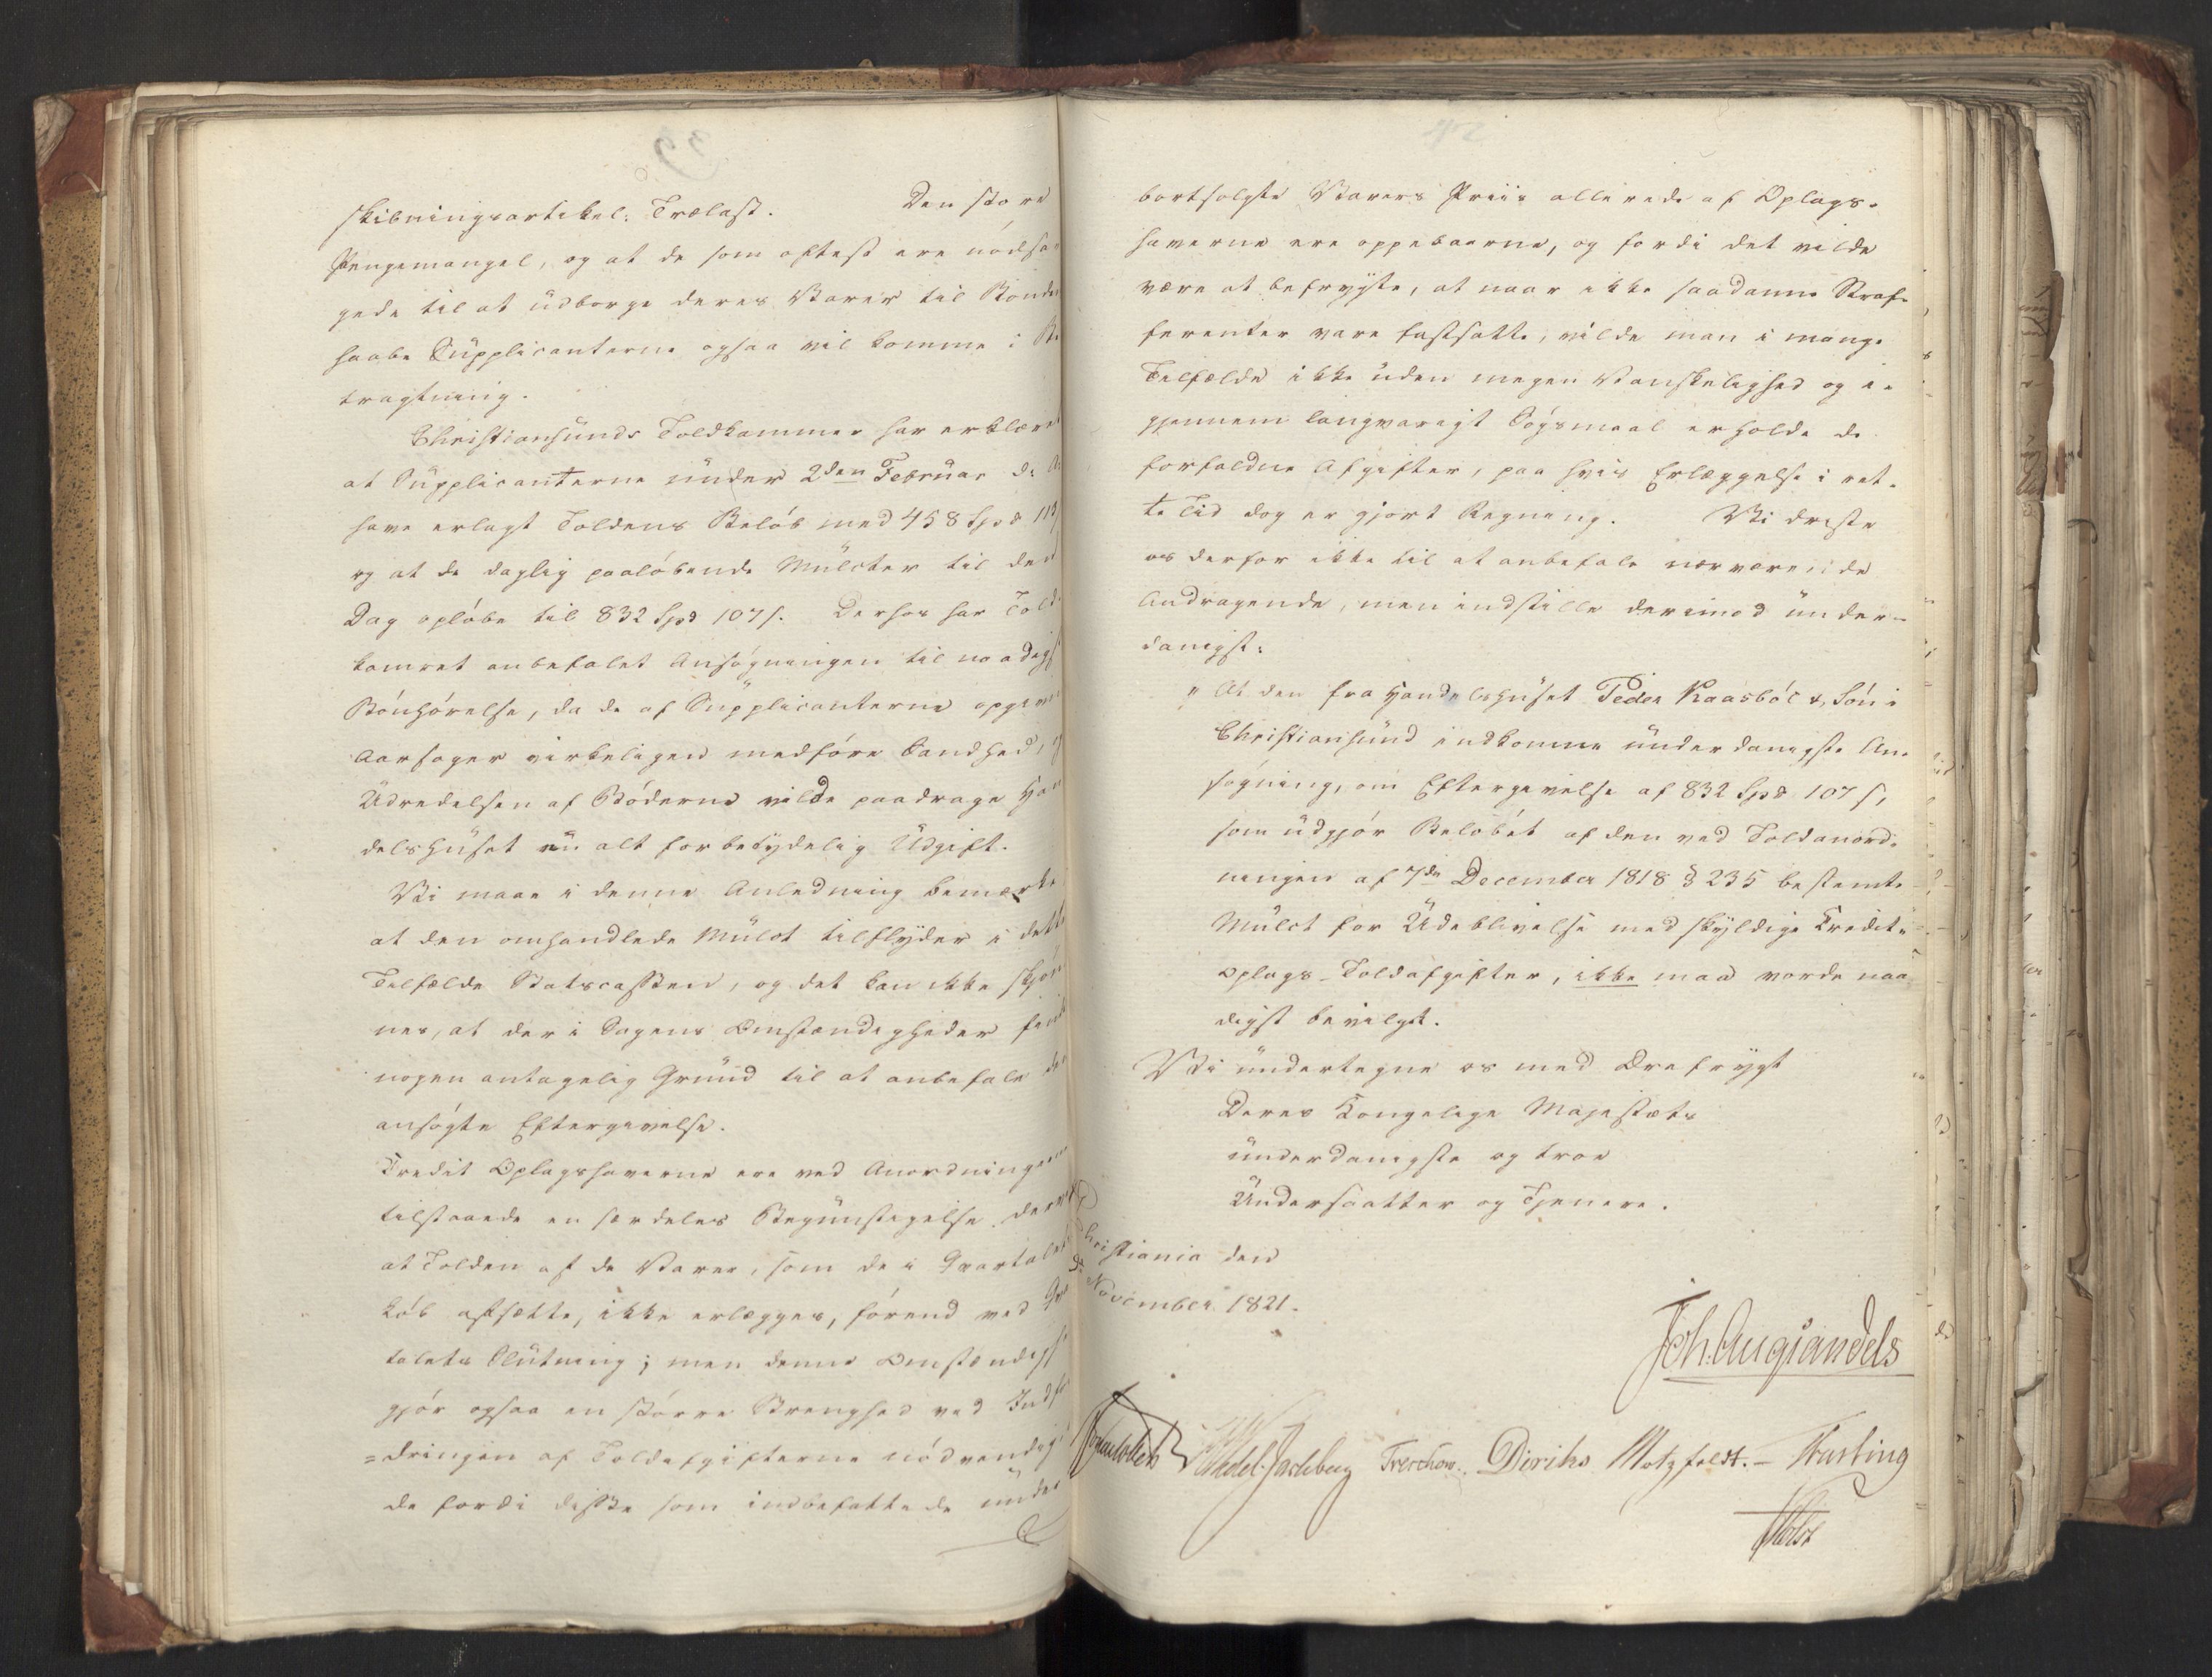 skibningsartikel: Trælast. Den store
Pengemangel, og at de som oftest ere nødsa
gede til at udborge deres Varer til Bonden
haabe Supplicanterne ogsaa vil komme i Be
tragtning.
Christiansunds Toldkammer har erklæret
at Supplicanterne under 2den Februar d: A:
have erlagt Toldens Beløb med 458 Spd
og at de daglig paaløbende Mulcter til den
Dag opløbe til 832 Spd 107 s. Derhos har Told-
kamret anbefalet Ansøgningen til naadigst
Bønhørelse, da de af Supplicanterne opgivne
Aarsager virkeligen medføre Sandhed, og
Udredelsen af Bøderne vilde paadrage Han
delshuset en alt for betydelig Udgift.
Vi maae i denne Anledning bemærke,
at den omhandlede Mulct tilflyder i dette
Tilfælde Statscassen, og det kan ikke skjøn
nes, at der i Sagens Omstændigheder findes
nogen antagelig Grund til at anbefale den
ansøgte Eftergivelse.
Credit Oplagshaverne ere ved Anordningen
tilstaaede en særdeles Begunstigelse derved
at Tolden af de Varer, som de i Qvartalets
Løb afsætte, ikke erlægges, førend ved Qvar
talets Slutning; men denne Omstændighed
gjør ogsaa en større Strenghed ved Indfor
=dringen af Toldafgifterne nødvendig,
da fordi disse som indbefattede under
39
bortsolgte Varers Priis allerede af Oplags-
haverne ere oppebaarne, og fordi det vilde
være at befrygte, at naar ikke saadanne Straf-
ferenter vare fastsatte, vilde man i mange
Tilfælde ikke uden megen Vanskelighed og i-
gjennem langvarigt Søgsmaal erholde de
forfaldne Afgifter, paa hvis Erlæggelse i ret-
te Tid dog er gjort Regning. Vi driste
os derfor ikke til at anbefale nærværende
Andragende, men indstille derimod under-
danigst:
"At den fra Handelshuset Peder Kaasbøl & Søn i
Christiansund indkomne underdanigste An-
søgning, om Eftergivelse af 832 Spd 107 s,
som udgjør Beløbet af den ved Toldanord-
ningen af 7de December 1818 § 235 bestemte
Mulct for Udeblivelse med skyldige Credit-
oplags-Toldafgifter, ikke maa vorde naa-
digst bevilget.
Vi undertegne os med Ærefrygt
Deres Kongelige Majestæts
underdanigste og troe
Undersaatter og Tjenere.
Christiania den
November 1821.
Joh: Aug: Sandels
Sommerhielm Wedel-Jarlsberg Treschow. Diriks Motzfeldt. - Fasting
Holst